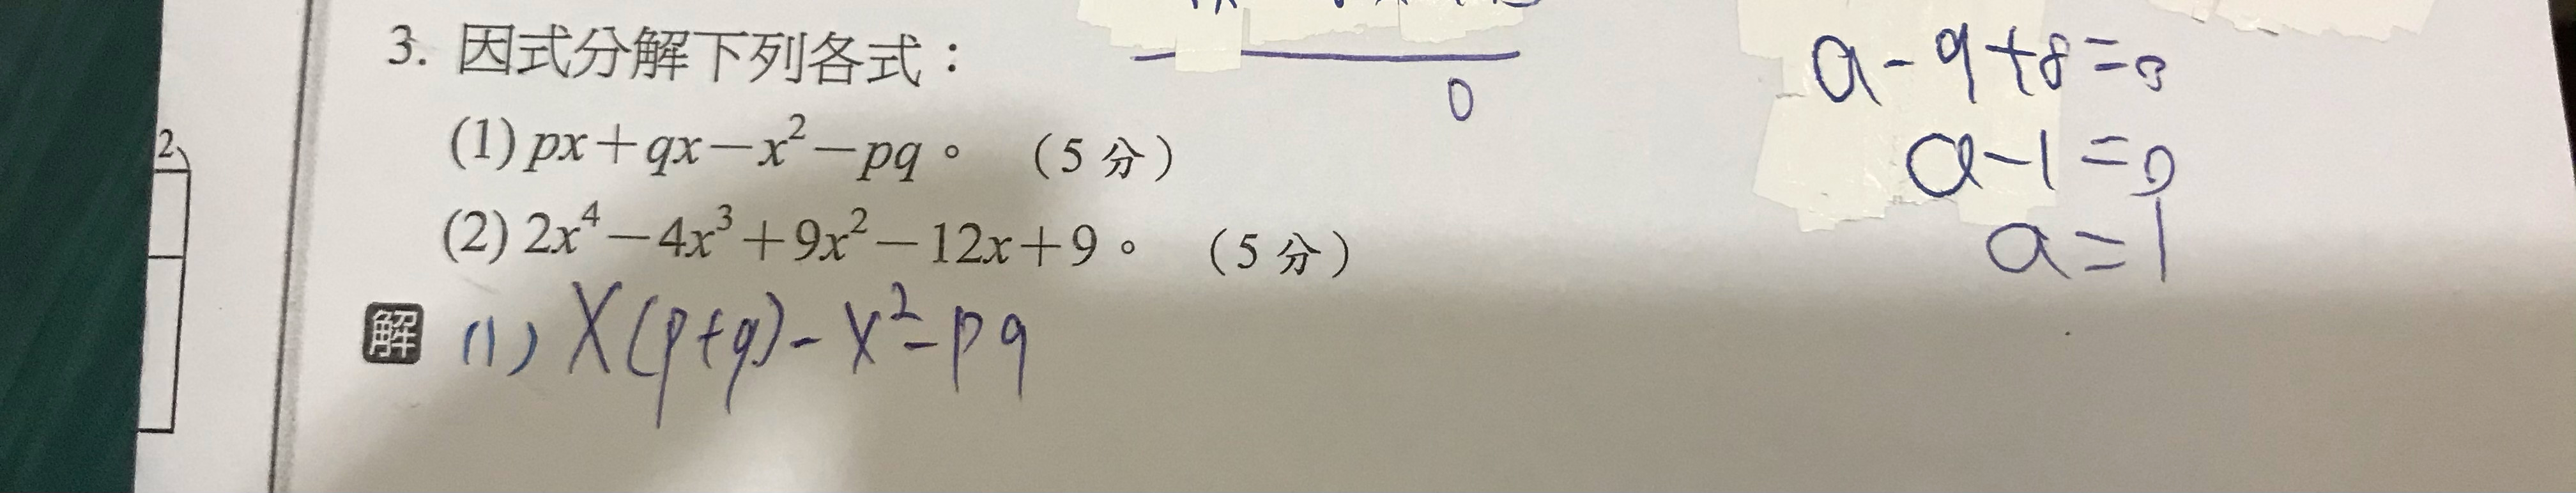 3. 因式分解下列各式：
(1) px＋qx－x²－pq。 （5 分）
(2) 2x⁴－4x³＋9x²－12x＋9。 （5 分）
解 (1) X(p+q)-x²-pq
0
a-9+8=0
a-1=0
a=1
2